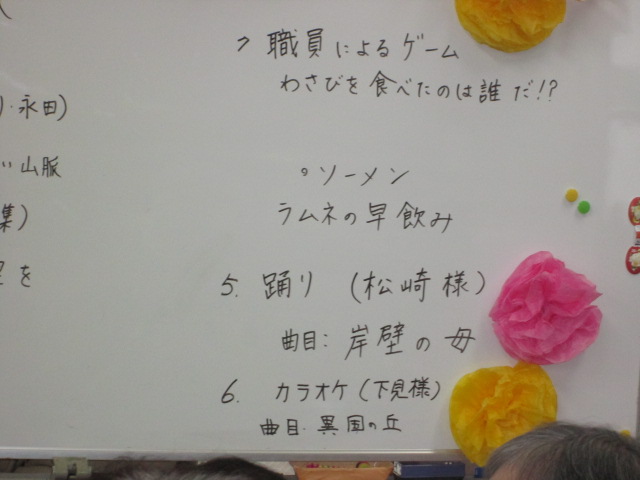 職員によるゲーム
わさびを食べたのは誰だ!?
・永田)
い山脈
。ソーメン
集)
ラムネの早飲み
を
5. 踊り (松崎様)
曲目: 岸壁の母
6. カラオケ (下見様)
曲目. 異国の丘